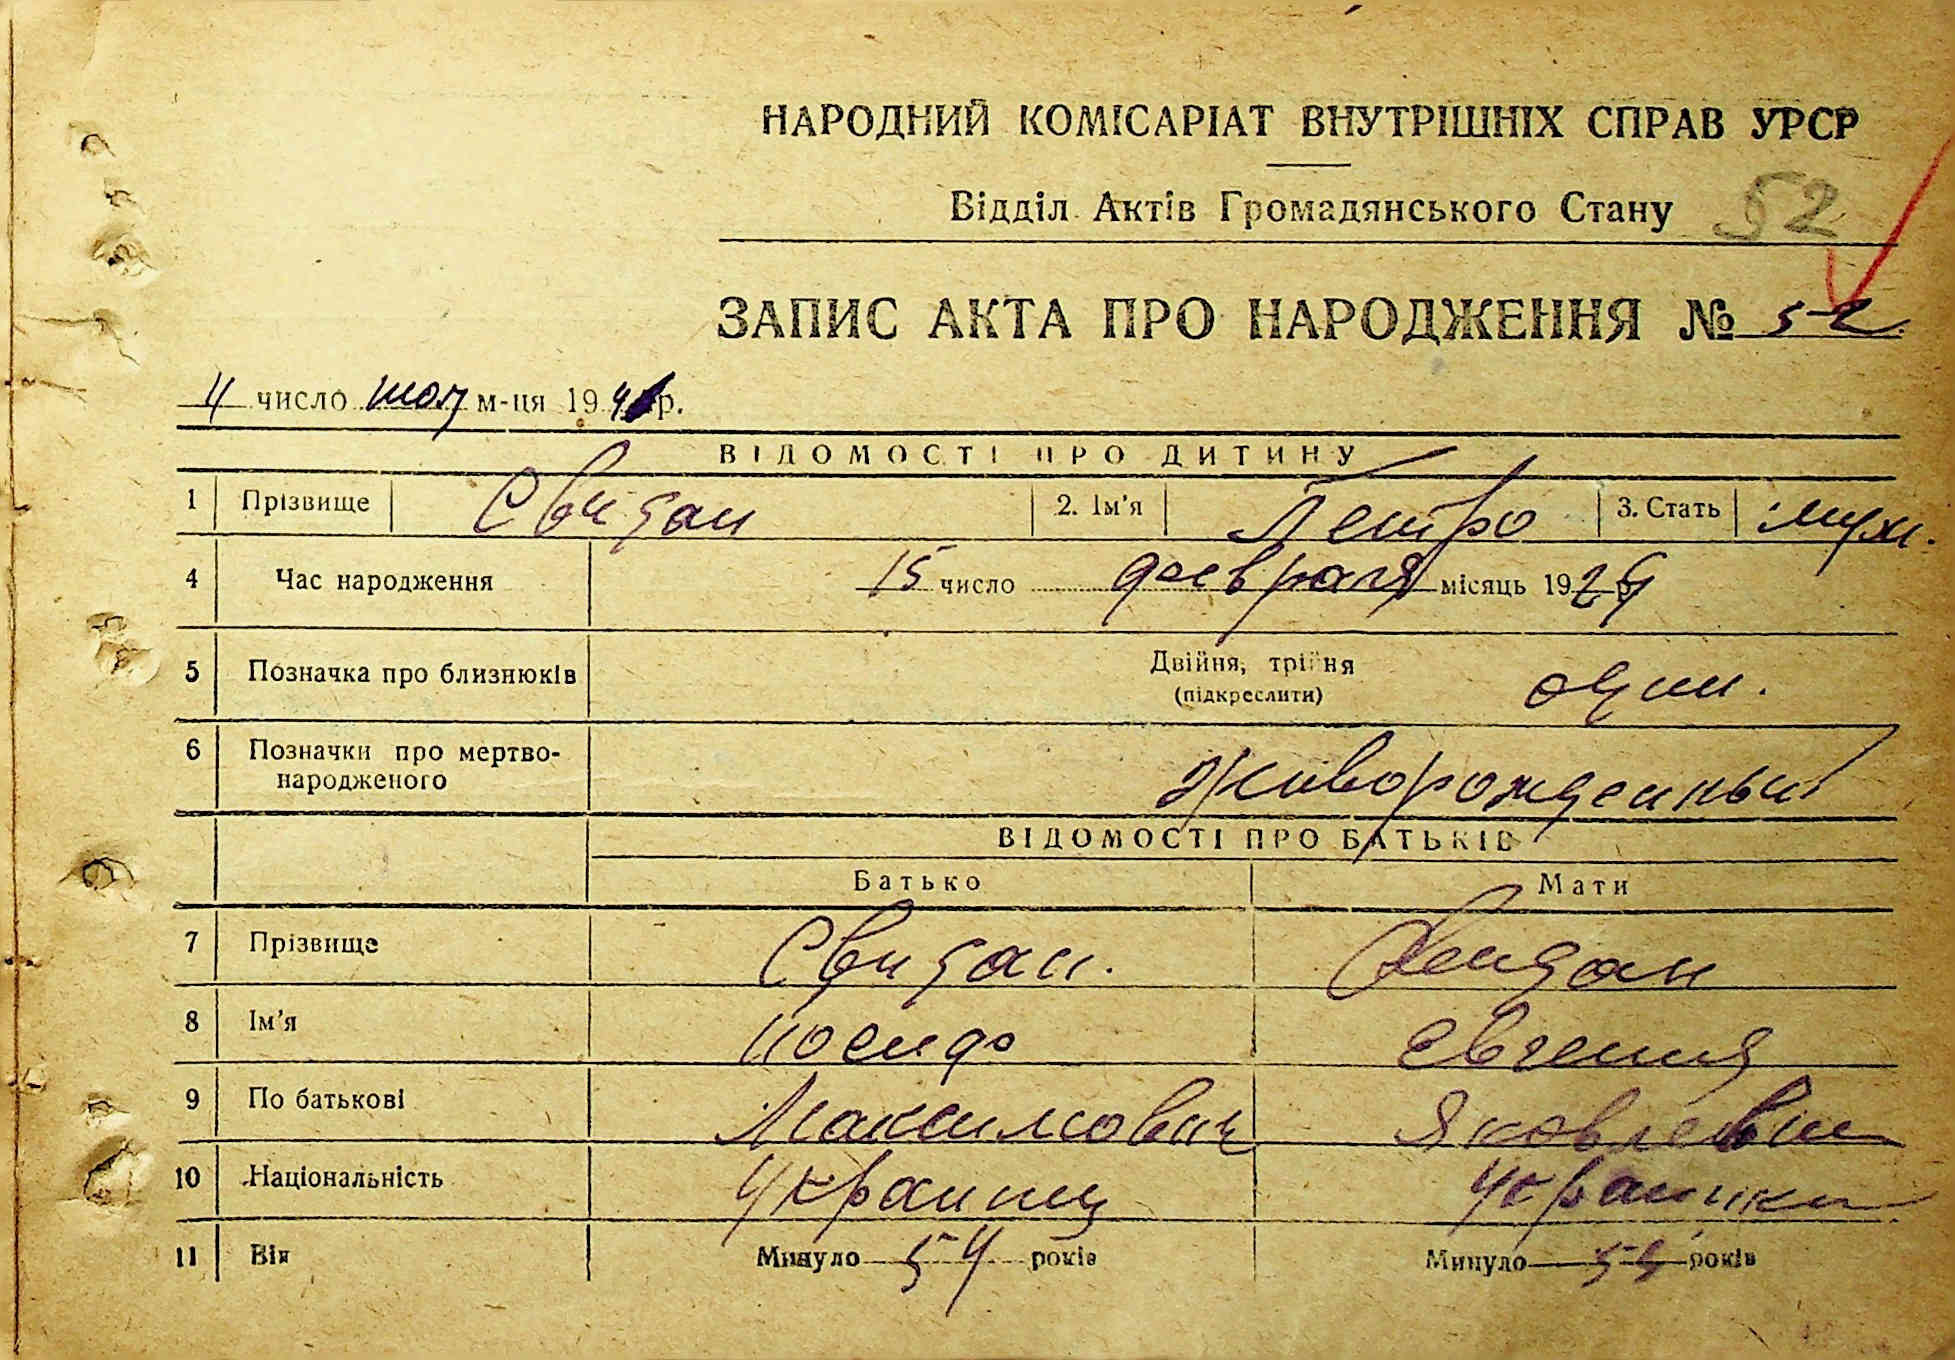 НАРОДНИЙ КОМІСАРІАТ ВНУТРІШНІХ СПРАВ УРСР
Відділ Актів Громадянського Стану 52
ЗАПИС АКТА ПРО НАРОДЖЕННЯ № 52
число м-ця 194 р.
ВІДОМОСТІ ПРО ДИТИНУ
1 Прізвище Свидан 2. Ім'я Петро 3. Стать муж.
4 Час народження 15 число февраля місяць 192
5 Позначка про близнюків Двійня, трійня один.
(підкреслити)
6 Позначки про мертво-
народженого живорожденный
ВІДОМОСТІ ПРО БАТЬКІВ
Батько Мати
7 Прізвище Свидан. Свидан
8 Ім'я Евгения
9 По батькові Максимович
10 Національність Украинец Украинка
11 Вік Минуло 54 років Минуло років